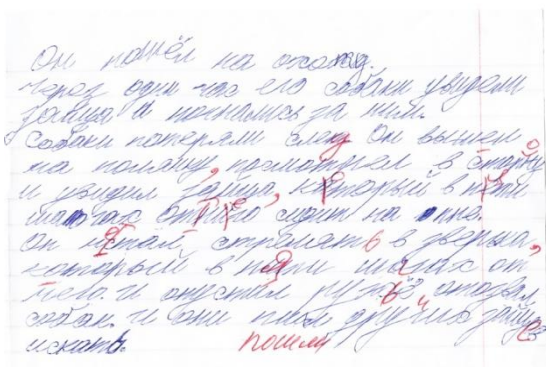 Он пошёл на охоту.
Через один час его собаки увидели
зайца и погнались за ним.
Собаки потеряли след Он вышел
на поляну, посмотрел в сторону
и увидил зайца, который в пяти
шагах от него сидит на пне.
Он не стал стрелять в зверька,
который в пяти шагах от
него. и опустил ружьё, отозвал
собак. и они пошли другого зайца
искать. пошли